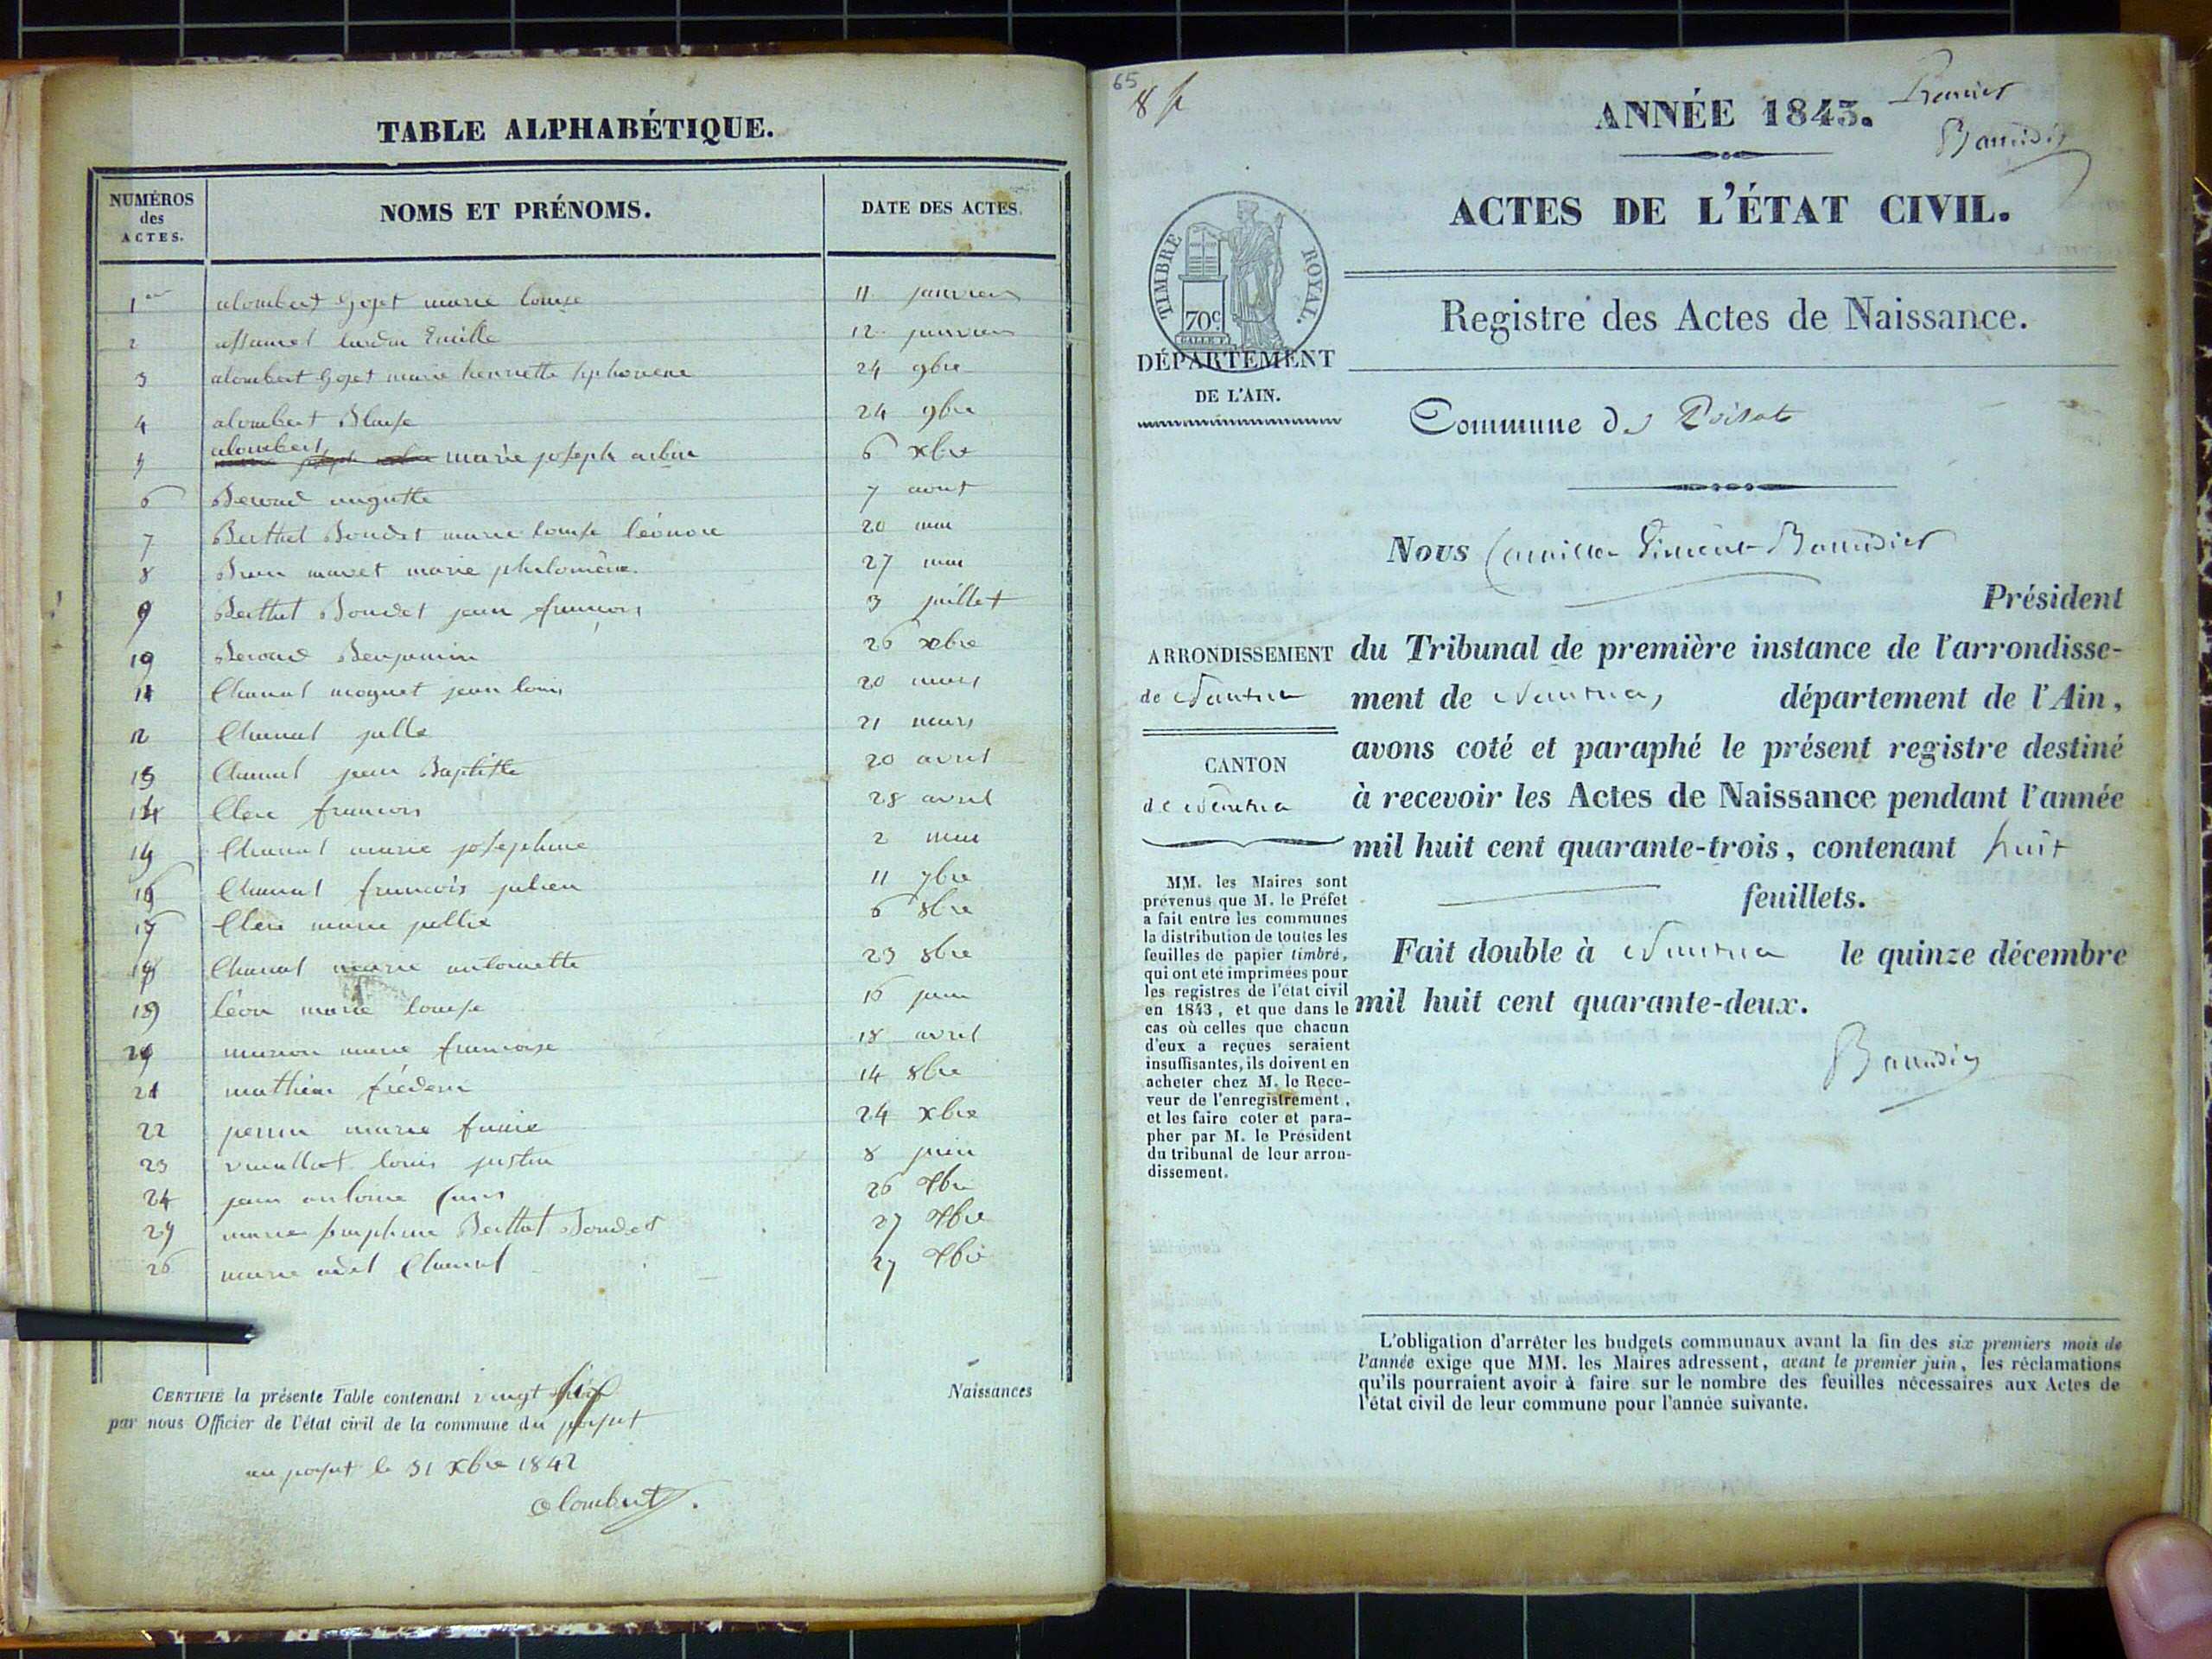 TABLE ALPHABÉTIQUE.
NUMÉROS
des
ACTES.
NOMS ET PRÉNOMS.
DATE DES ACTES.
1er alombert gojet marie louise 11 janvier
2 assumel lurdin Emille 12 janvier
3 alombert gojet marie henriette 24 9bre
4 alombert Blaise 24 9bre
5 alombert marie joseph 6 xbre
6 Beroud 7 aout
7 Berthet Boudet marie louise léonore 20 mai
8 marie philomène 27 mai
9 Berthet Boudet jean francois 3 juillet
10 Beroud Benjamin 26 xbre
11 Chanal moguet jean louis 20 mars
12 Chanal julle 21 mars
13 Chanal jean Baptiste 20 avril
14 Clerc francois 28 avril
15 Chanal marie josephine 2 mai
16 Chanal francois julien 11 7bre
17 Clerc marie jullie 6 8bre
18 Chanal marie antoinette 23 8bre
19 léon marie louise 16 juin
20 marion marie francoise 18 avril
21 mathieu 14 8bre
22 perrin marie 24 xbre
23 vuaillat louis justin 8 juin
24 jean antoine 26 Xbre
25 marie josephine Berthet Boudet 27 Xbre
26 marie adel Chanal 27 Xbre
CERTIFIÉ la présente Table contenant vingt six Naissances
par nous Officier de l'état civil de la commune du poizat
au poizat le 31 Xbre 1842
alombert
65
8 f
ANNÉE 1843.
Premier
Baudier
ACTES DE L'ÉTAT CIVIL.
TIMBRE ROYAL.
70c
Registre des Actes de Naissance.
DÉPARTEMENT
DE L'AIN.
Commune de Poizat
Nous Camille Vincent Baudier
Président
ARRONDISSEMENT
de Nantua
du Tribunal de première instance de l'arrondisse-
ment de Nantua, département de l'Ain,
avons coté et paraphé le présent registre destiné
à recevoir les Actes de Naissance pendant l'année
mil huit cent quarante-trois, contenant huit
feuillets.
Fait double à Nantua le quinze décembre
mil huit cent quarante-deux.
Baudier
CANTON
de Nantua
MM. les Maires sont
prévenus que M. le Préfet
a fait entre les communes
la distribution de toutes les
feuilles de papier timbré,
qui ont été imprimées pour
les registres de l'état civil
en 1843, et que dans le
cas où celles que chacun
d'eux a reçues seraient
insuffisantes, ils doivent en
acheter chez M. le Rece-
veur de l'enregistrement,
et les faire coter et para-
pher par M. le Président
du tribunal de leur arron-
dissement.
L'obligation d'arrêter les budgets communaux avant la fin des six premiers mois de
l'année exige que MM. les Maires adressent, avant le premier juin, les réclamations
qu'ils pourraient avoir à faire sur le nombre des feuilles nécessaires aux Actes de
l'état civil de leur commune pour l'année suivante.